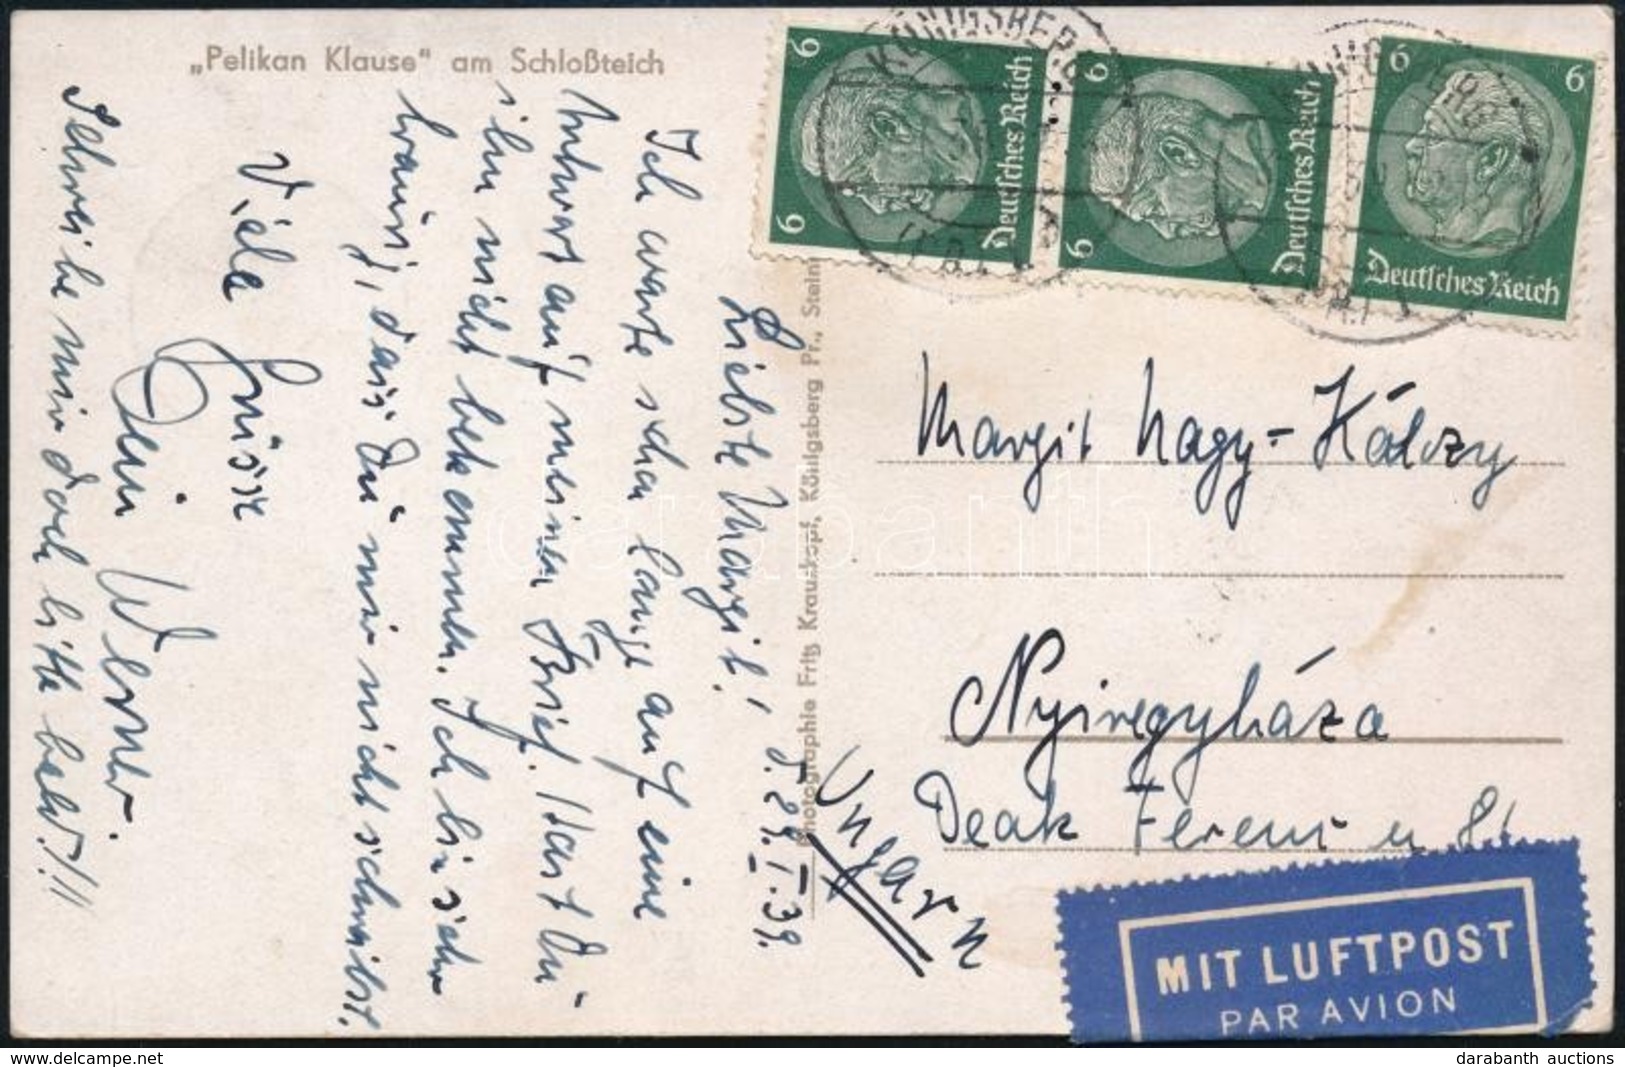 „Pelikan Klause" am Schloßteich
Liebste Margit! 29.I.39.
Ich warte schon lange auf eine
Antwort auf meinen Brief. Hast Du
ihn nicht bekommen. Ich bin sehr
traurig, dass Du mir nicht schreibst.
Viele Grüsse
Dein Werner.
Schreibe mir doch bitte bald!!!
Photographie Fritz Krauskopf, Königsberg Pr., Stein
KÖNIGSBERG
6 6
Deutsches Reich
KÖNIGSBERG
6 6
Deutsches Reich
6 6
Deutsches Reich
Margit Nagy-Kálozy
Nyiregyháza
Deak Ferenc u
Ungarn
MIT LUFTPOST
PAR AVION
darabanth
darabanth auctions
Generated at 2024.04.30. 11:47